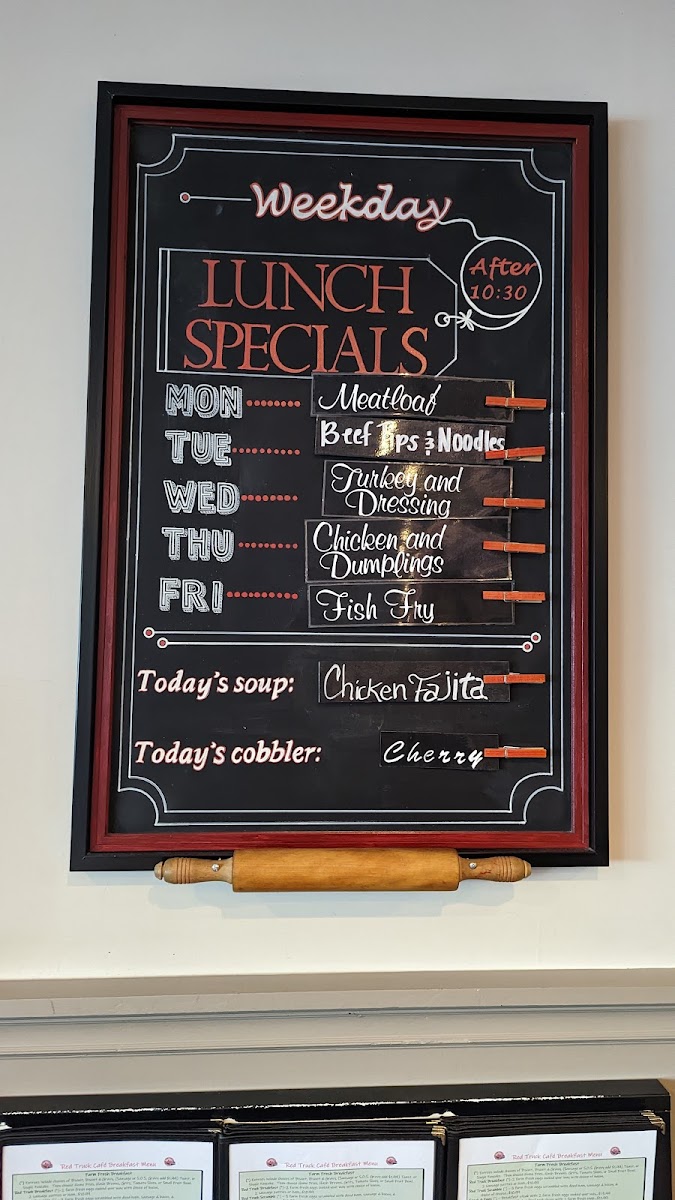 Weekday
After
10:30
LUNCH
SPECIALS
MON Meatloaf
TUE Beef Tips & Noodles
WED Turkey and
Dressing
THU Chicken and
Dumplings
FRI Fish Fry
Today's soup: Chicken Fajita
Today's cobbler: Cherry
Red Truck Café Breakfast Menu
Farm Fresh Breakfast
Red Truck Café Breakfast Menu
Farm Fresh Breakfast
Red Truck Café Breakfast Menu
Farm Fresh Breakfast